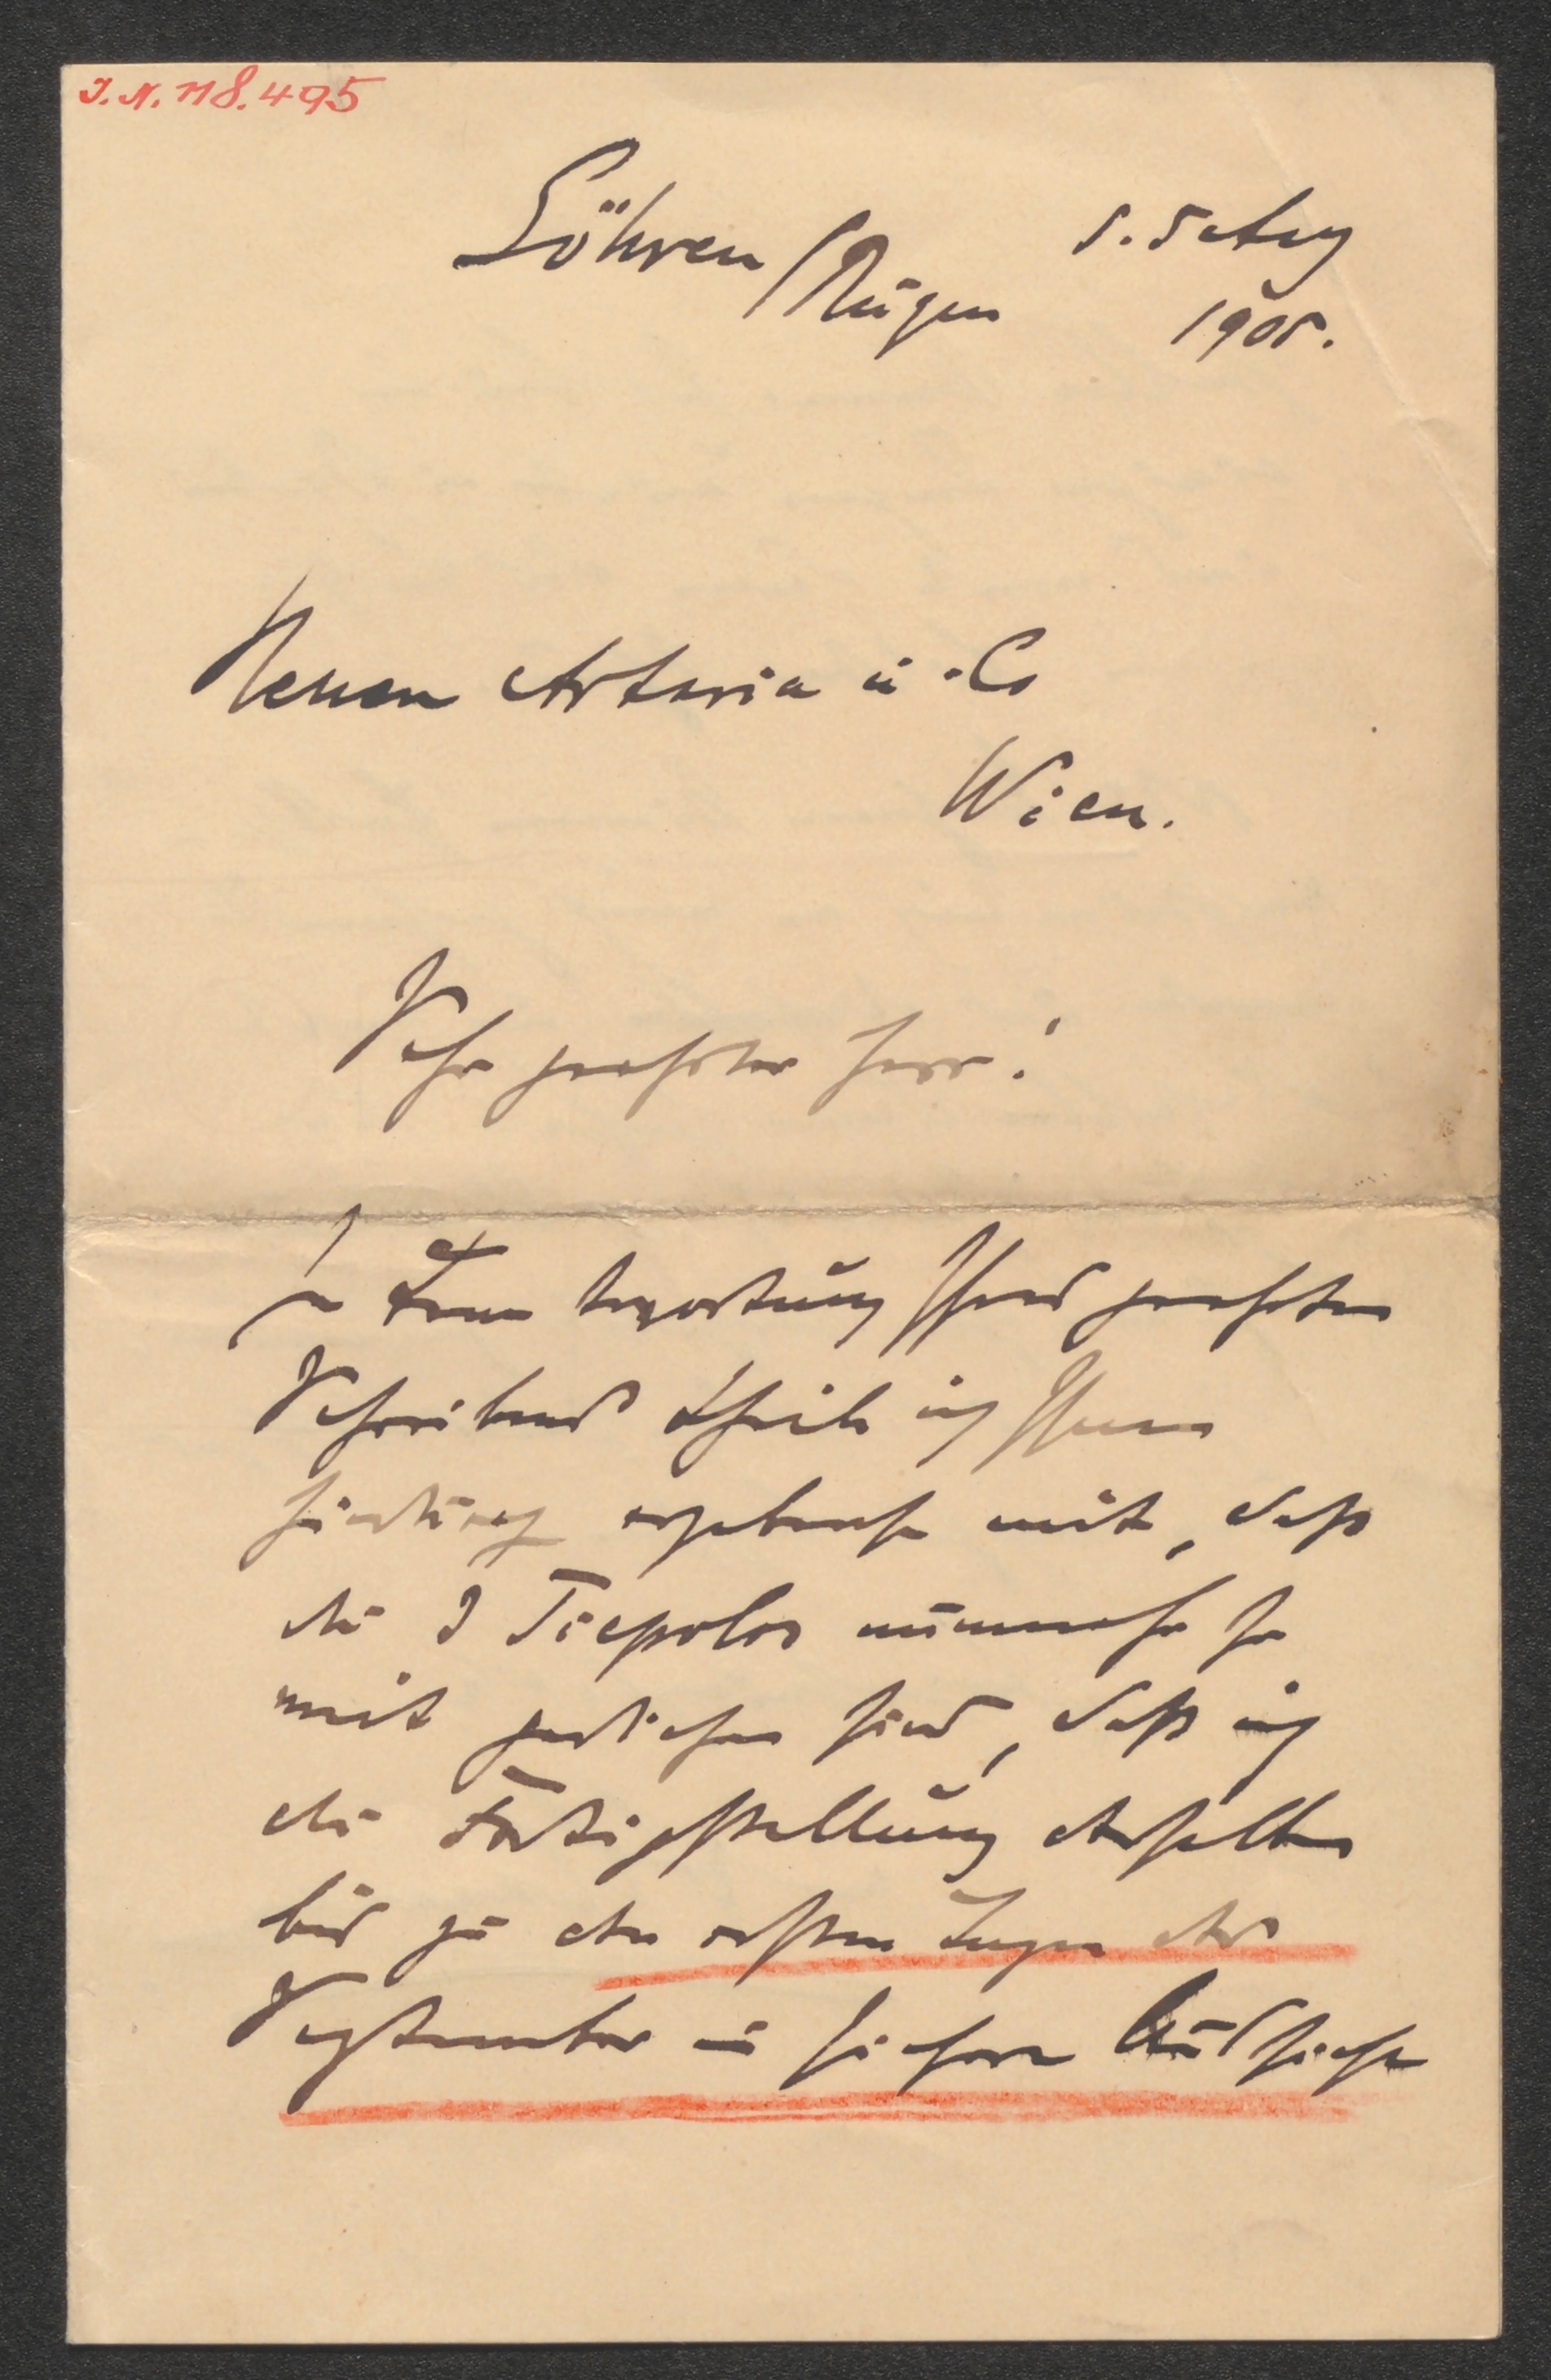 I.N. 118.495
Göhren / Rügen
5. Aug
1905.
Herren Artaria u. Co
Wien.
Sehr geehrter Herr!
In Beantwortung Ihres geehrten
Schreibens theile ich Ihnen
hierdurch ergebenst mit, daß
die Tiepolos nunmehr so
weit gediehen sind, daß ich
die Fertigstellung derselben
bis zu den ersten Tagen des
September in sichere Aussicht